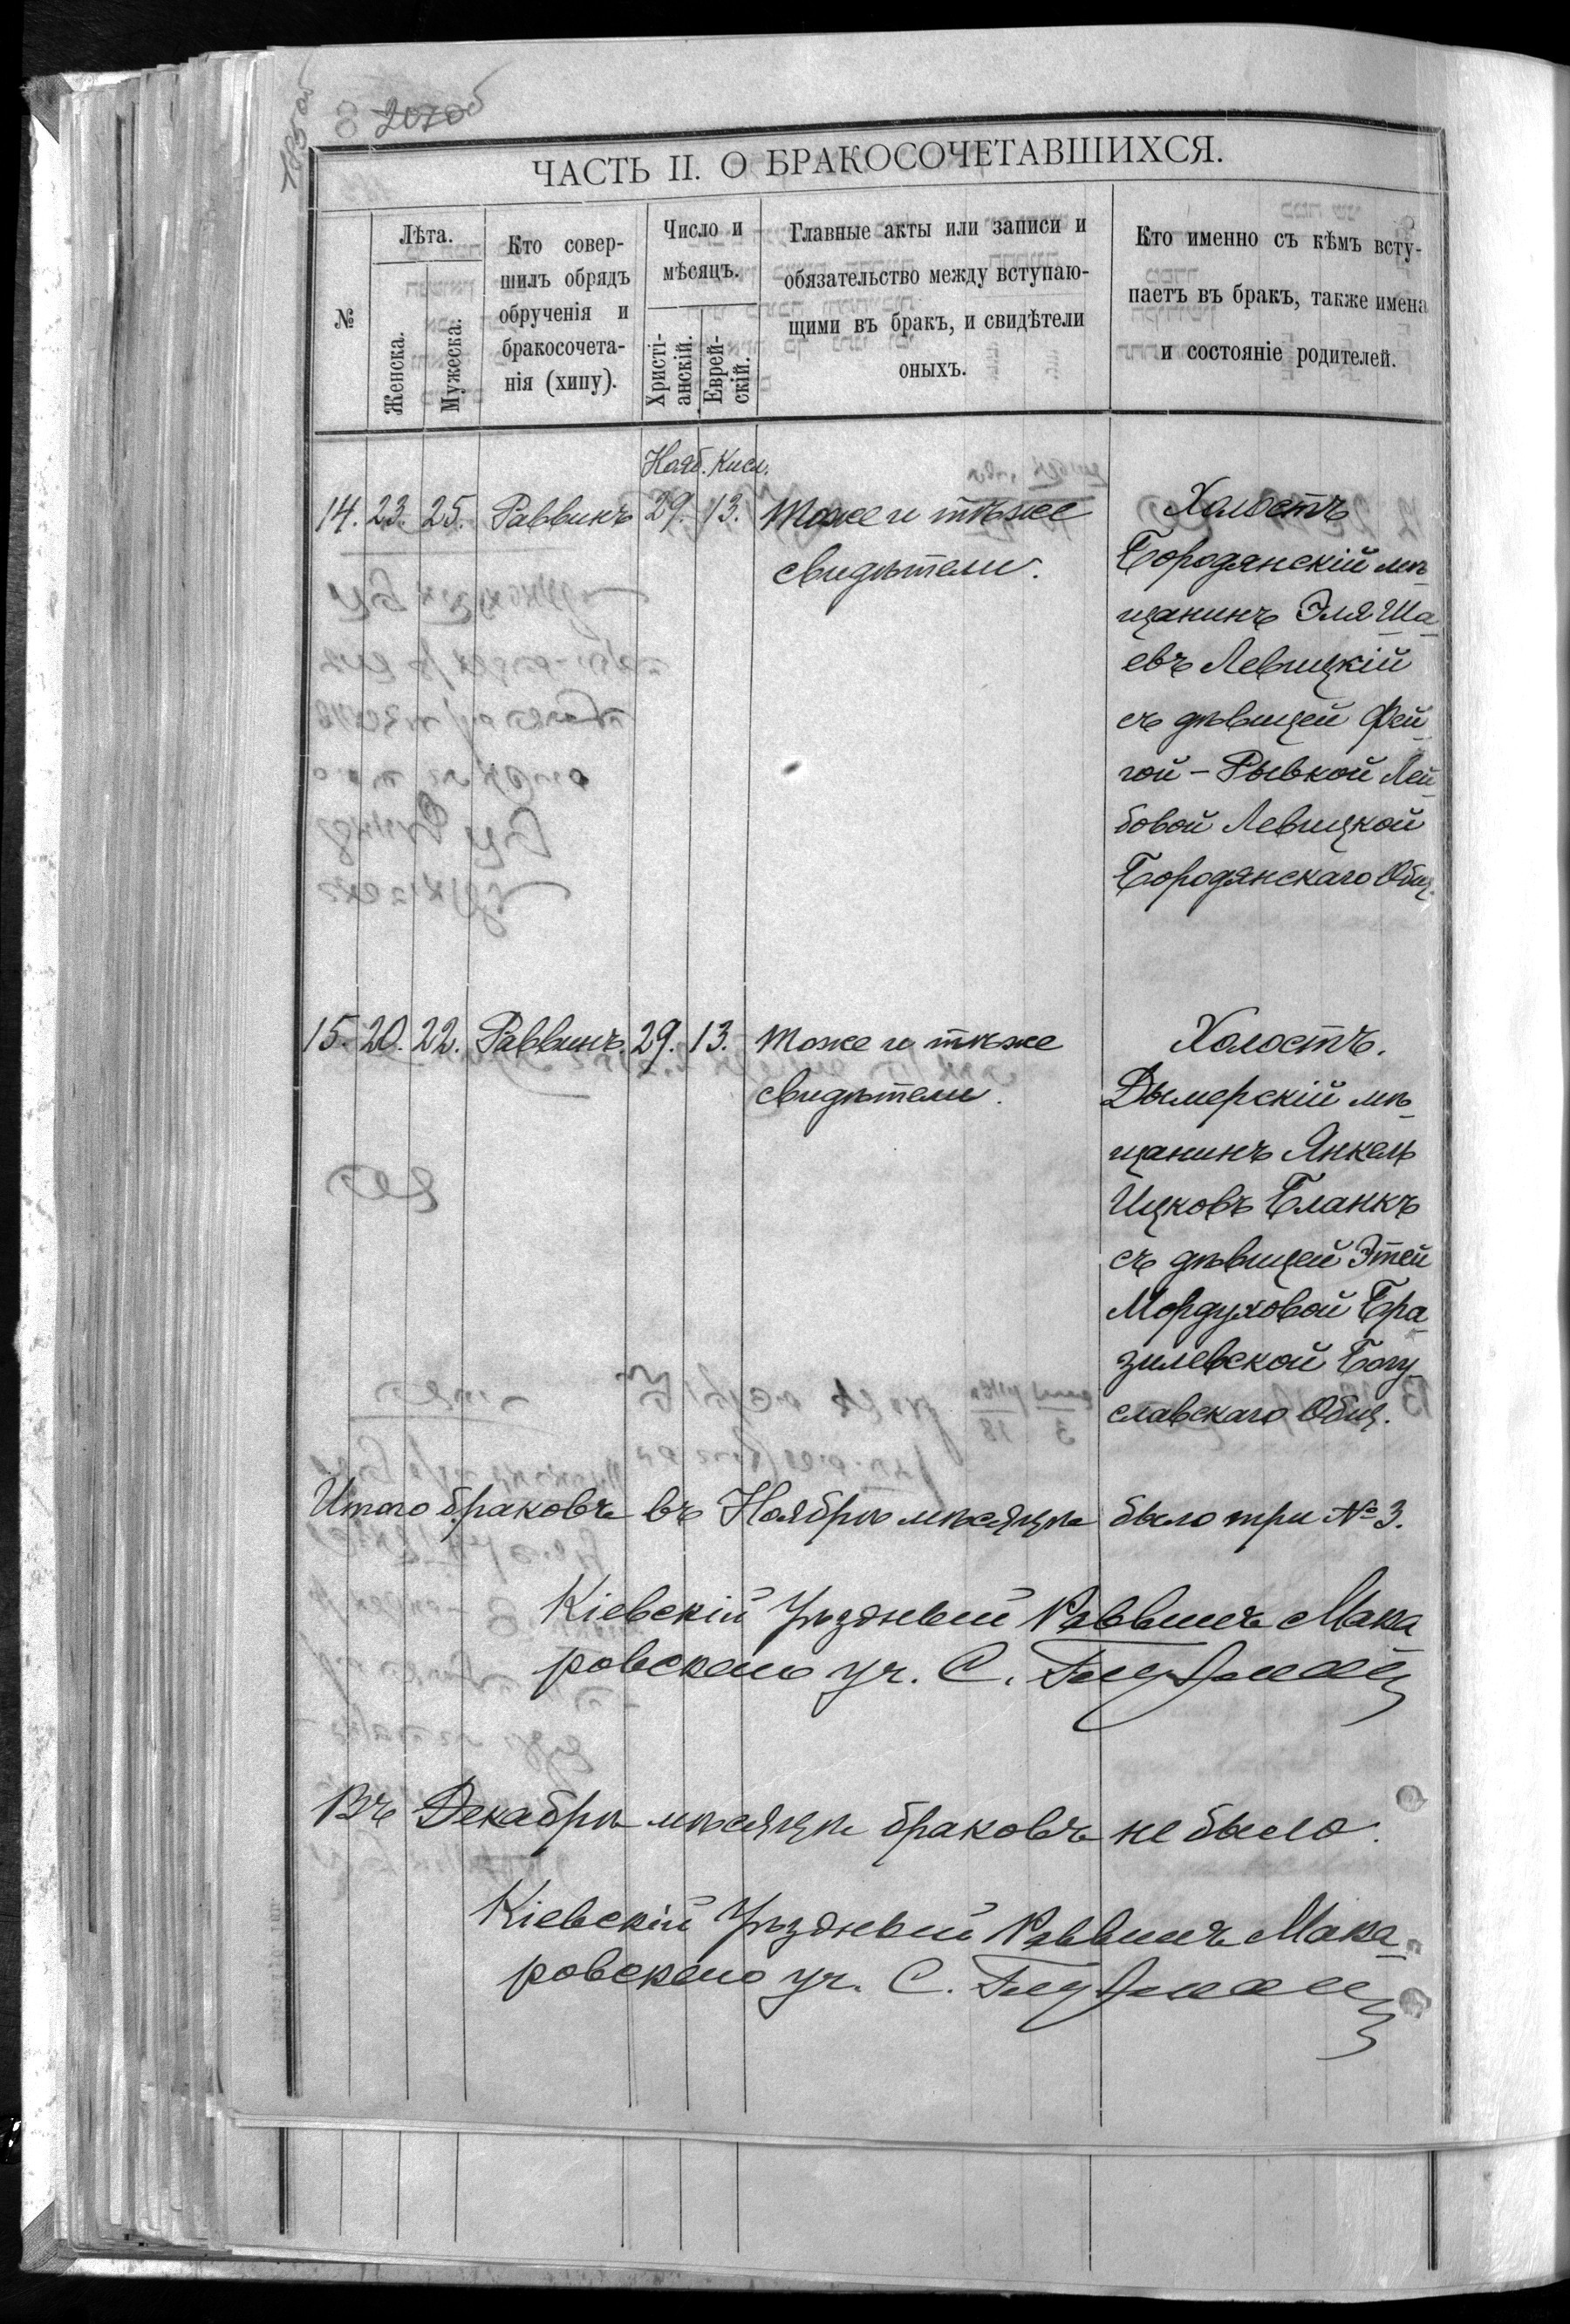 ЧАСТЬ II. О БРАКОСОЧЕТАВШИХСЯ.
№
Лѣта.
Женска.
Мужеска.
Кто совер-
шилъ обрядъ
обрученія и
бракосочета-
нія (хипу).
Число и
мѣсяцъ.
Христі-
анскій.
Еврей-
скій.
Главные акты или записи и
обязательство между вступаю-
щими въ бракъ, и свидѣтели
оныхъ.
Кто именно съ кѣмъ всту-
паетъ въ бракъ, также имена
и состояніе родителей.
Нояб. Кисл.
14. 23. 25. Раввинъ 29. 13. Тоже и тѣже
свидѣтели.
Холостъ
Бородянскій мѣ-
щанинъ Эля Ша-
евъ Левицкій
съ дѣвицей Фей-
гой - Рывкой Лей-
бовой Левицкой
Бородянскаго Общ.
15. 20. 22. Раввинъ. 29. 13. Тоже и тѣже
свидѣтели.
Холостъ.
Дымерскій мѣ-
щанинъ Янкель
Ицковъ Бланкъ
съ дѣвицей Этей
Мордуховой Бра-
зилевской Богу-
славскаго Общ.
Итого браковъ въ Ноябрѣ мѣсяцѣ было три № 3.
Кіевскій Уѣздный Раввинъ Мака
ровскаго уч. С.
Въ Декабрѣ мѣсяцѣ браковъ не было.
Кіевскій Уѣздный Раввинъ Мака-
ровскаго уч. С.